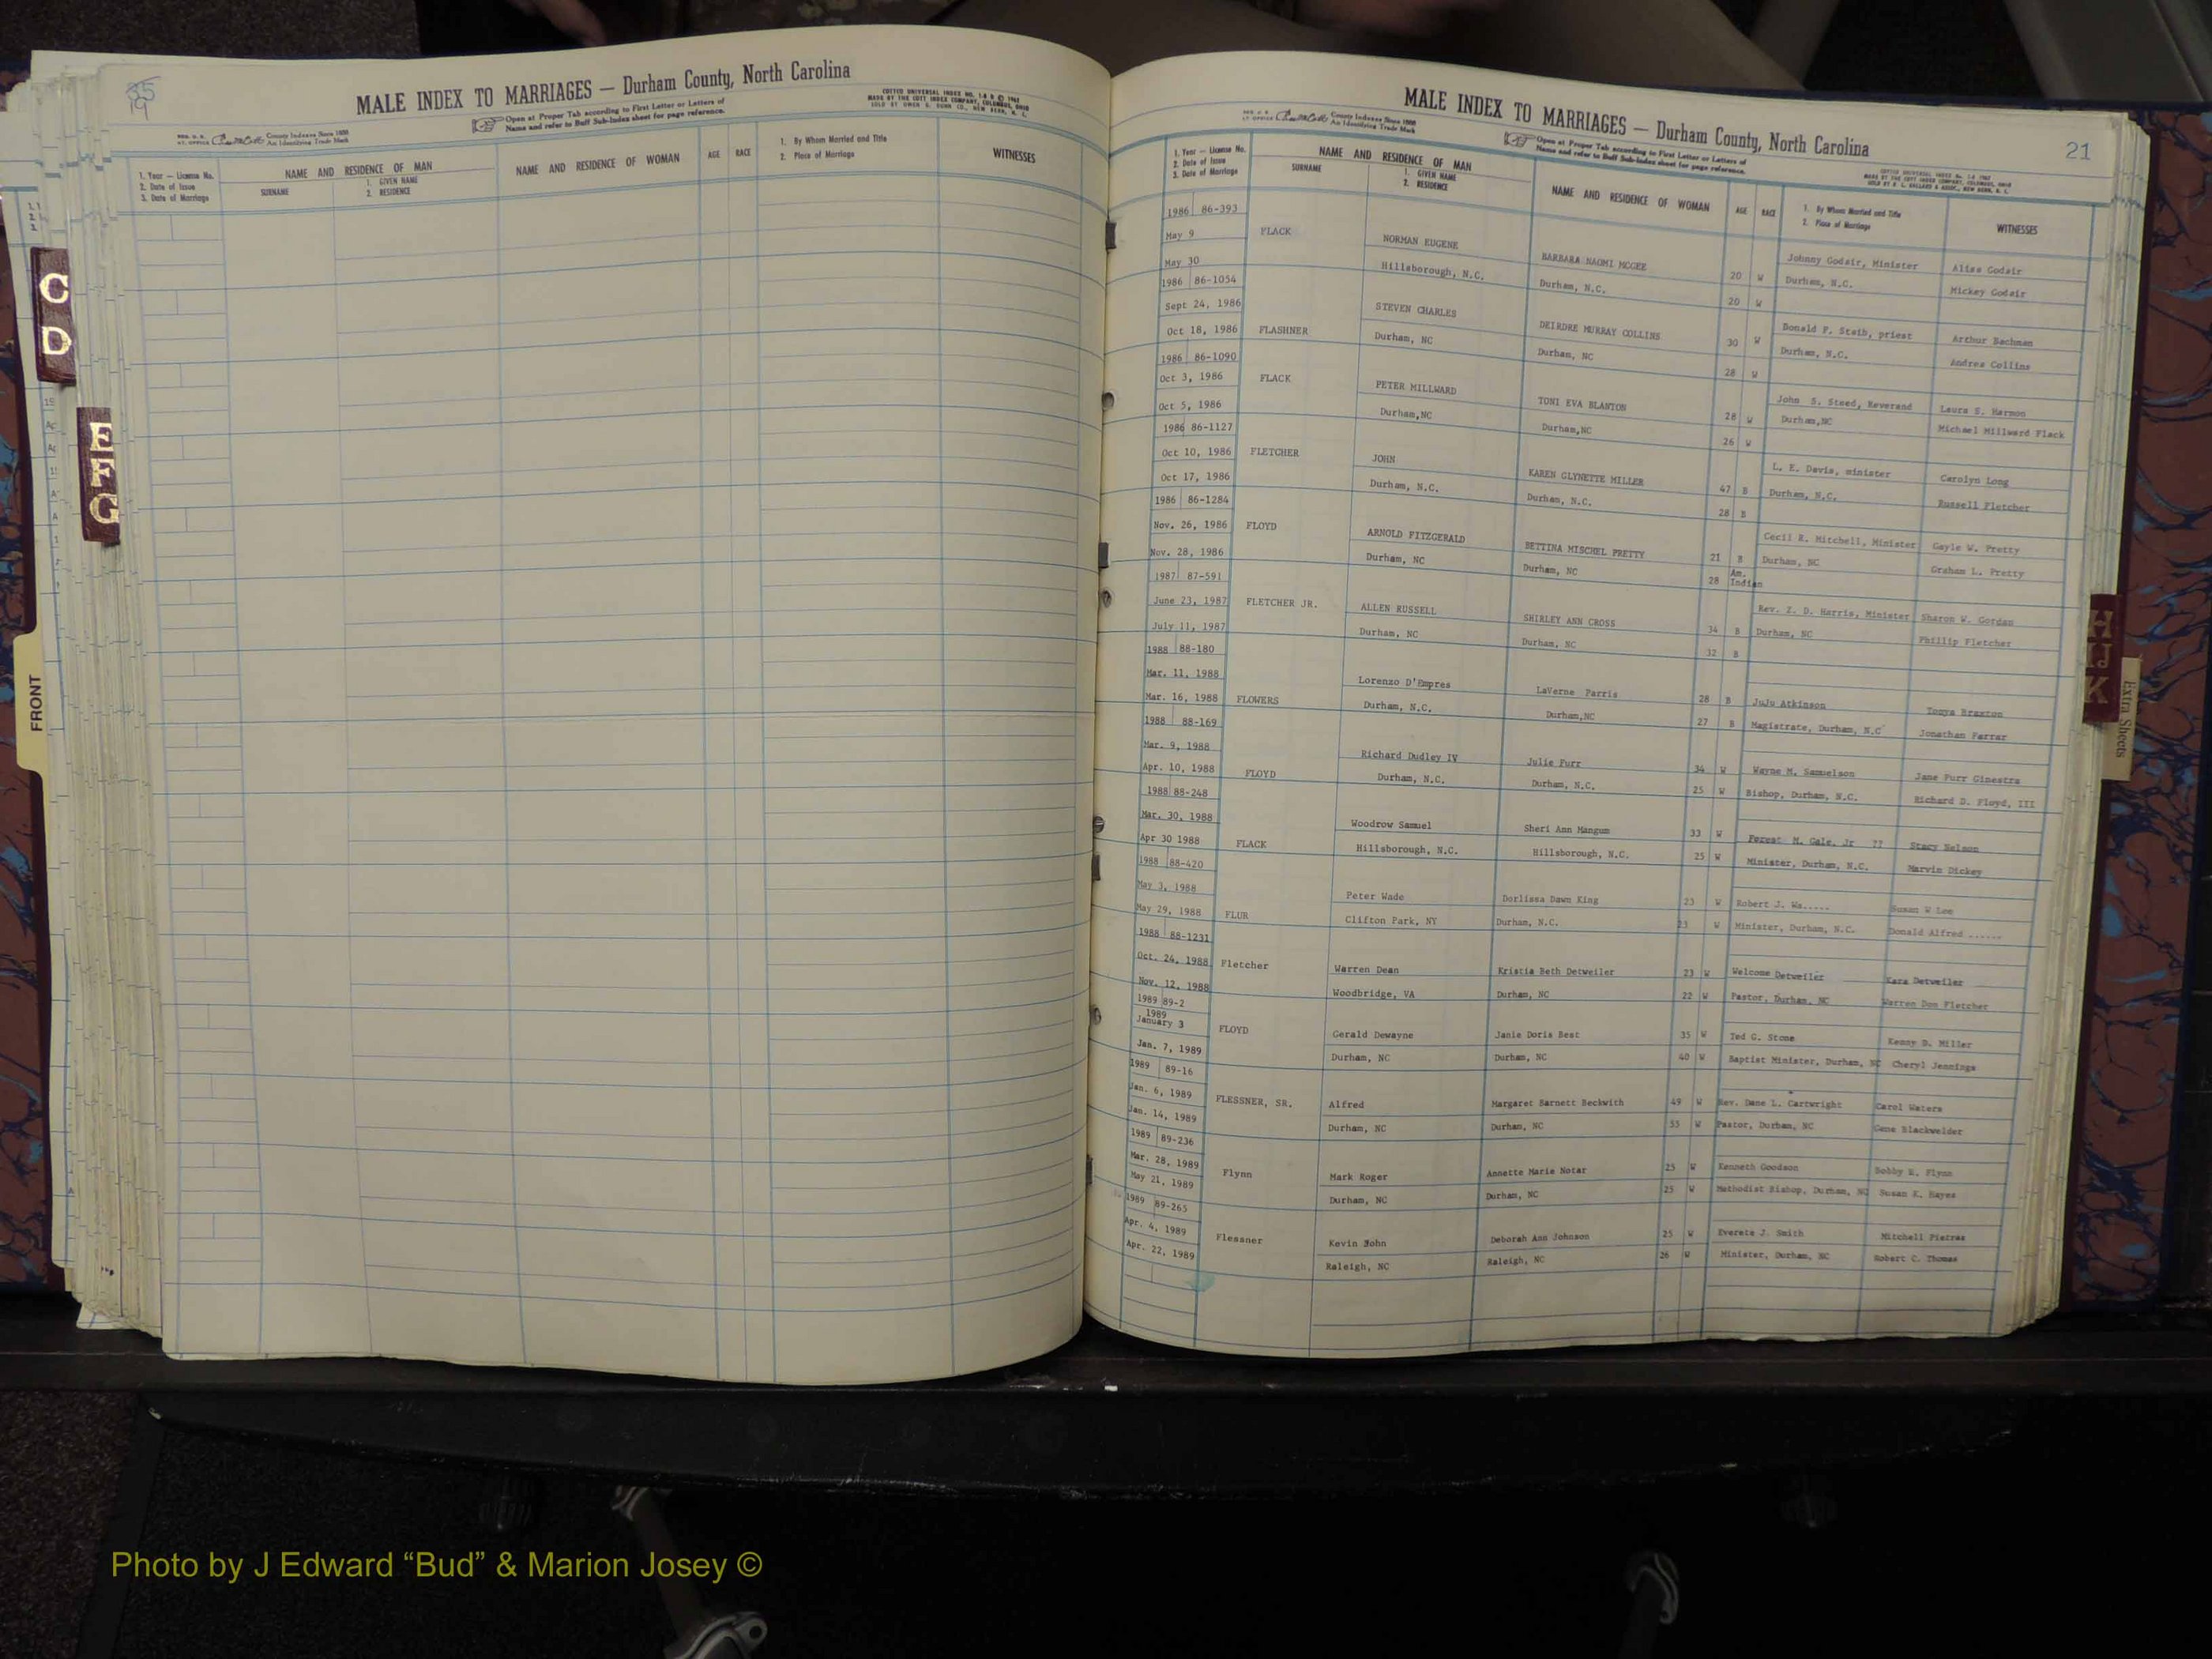 MALE INDEX TO MARRIAGES — Durham County, North Carolina
Open at Proper Tab according to First Letter or Letters of
Name and refer to Buff Sub-Index sheet for page reference.
COTTCO UNIVERSAL INDEX NO.
MADE BY THE COTT INDEX COMPANY, COLUMBUS, OHIO
SOLD BY OWEN G. DUNN CO., NEW BERN, N. C.
County Indexes Since 1888
An Identifying Trade Mark
1. Year — License No.
2. Date of Issue
3. Date of Marriage
NAME AND RESIDENCE OF MAN
SURNAME
1. GIVEN NAME
2. RESIDENCE
NAME AND RESIDENCE OF WOMAN
AGE
RACE
1. By Whom Married and Title
2. Place of Marriage
WITNESSES
C
D
E
F
G
FRONT
MALE INDEX TO MARRIAGES — Durham County, North Carolina
21
County Indexes Since 1888
An Identifying Trade Mark
Open at Proper Tab according to First Letter or Letters of
Name and refer to Buff Sub-Index sheet for page reference.
1. Year — License No.
2. Date of Issue
3. Date of Marriage
NAME AND RESIDENCE OF MAN
SURNAME
1. GIVEN NAME
2. RESIDENCE
NAME AND RESIDENCE OF WOMAN
AGE
RACE
1. By Whom Married and Title
2. Place of Marriage
WITNESSES
1986 86-393
May 9 FLACK NORMAN EUGENE BARBARA NAOMI MCGEE 20 W Johnny Godair, Minister Alisa Godair
May 30 Hillsborough, N.C. Durham, N.C. 20 W Durham, N.C. Mickey Godair
1986 86-1054
Sept 24, 1986 STEVEN CHARLES DEIRDRE MURRAY COLLINS 30 W Donald F. Staib, priest Arthur Bachman
Oct 18, 1986 FLASHNER Durham, NC Durham, NC 28 W Durham, N.C. Andrea Collins
1986 86-1090
Oct 3, 1986 FLACK PETER MILLWARD TONI EVA BLANTON 28 W John S. Steed, Reverand Laura S. Harmon
Oct 5, 1986 Durham,NC Durham,NC 26 W Durham,NC Michael Millward Flack
1986 86-1127
Oct 10, 1986 FLETCHER JOHN KAREN GLYNETTE MILLER 47 B L. E. Davis, minister Carolyn Long
Oct 17, 1986 Durham, N.C. Durham, N.C. 28 B Durham, N.C. Russell Fletcher
1986 86-1284
Nov. 26, 1986 FLOYD ARNOLD FITZGERALD BETTINA MISCHEL PRETTY 21 B Cecil R. Mitchell, Minister Gayle W. Pretty
Nov. 28, 1986 Durham, NC Durham, NC 28 Am. Indian Durham, NC Graham L. Pretty
1987 87-591
June 23, 1987 FLETCHER JR. ALLEN RUSSELL SHIRLEY ANN CROSS 34 B Rev. Z. D. Harris, Minister Sharon W. Gordan
July 11, 1987 Durham, NC Durham, NC 32 B Durham, NC Phillip Fletcher
1988 88-180
Mar. 11, 1988 Lorenzo D'Empres LaVerne Parris 28 B JuJu Atkinson Tonya Braxton
Mar. 16, 1988 FLOWERS Durham, N.C. Durham,NC 27 B Magistrate, Durham, N.C Jonathan Farrar
1988 88-169
Mar. 9, 1988 Richard Dudley IV Julie Purr 34 W Wayne M. Samuelson Jane Purr Ginestra
Apr. 10, 1988 FLOYD Durham, N.C. Durham, N.C. 25 W Bishop, Durham, N.C. Richard D. Floyd, III
1988 88-248
Mar. 30, 1988 Woodrow Samuel Sheri Ann Mangum 33 W Forest M. Gale, Jr ?? Stacy Nelson
Apr 30 1988 FLACK Hillsborough, N.C. Hillsborough, N.C. 25 W Minister, Durham, N.C. Marvin Dickey
1988 88-420
May 3, 1988 Peter Wade Dorlissa Dawn King 23 W Robert J. Wa..... Susan W Lee
May 29, 1988 FLUR Clifton Park, NY Durham, N.C. 23 W Minister, Durham, N.C. Donald Alfred ......
1988 88-1231
Oct. 24, 1988 Fletcher Warren Dean Kristia Beth Detweiler 23 W Welcome Detweiler Kara Detweiler
Nov. 12, 1988 Woodbridge, VA Durham, NC 22 W Pastor, Durham, NC Warren Don Fletcher
1989 89-2
1989
January 3 FLOYD Gerald Dewayne Janie Doris Best 35 W Ted G. Stone Kenny D. Miller
Jan. 7, 1989 Durham, NC Durham, NC 40 W Baptist Minister, Durham, NC Cheryl Jennings
1989 89-16
Jan. 6, 1989 FLESSNER, SR. Alfred Margaret Barnett Beckwith 49 W Rev. Dane L. Cartwright Carol Waters
Jan. 14, 1989 Durham, NC Durham, NC 55 W Pastor, Durham, NC Gene Blackwelder
1989 89-236
Mar. 28, 1989 Flynn Mark Roger Annette Marie Notar 25 W Kenneth Goodson Bobby E. Flynn
May 21, 1989 Durham, NC Durham, NC 25 W Methodist Bishop, Durham, NC Susan K. Hayes
1989 89-265
Apr. 4, 1989 Flessner Kevin John Deborah Ann Johnson 25 W Everete J. Smith Mitchell Pietras
Apr. 22, 1989 Raleigh, NC Raleigh, NC 26 W Minister, Durham, NC Robert C. Thomas
H
IJ
K
Extra Sheets
Photo by J Edward “Bud” & Marion Josey ©